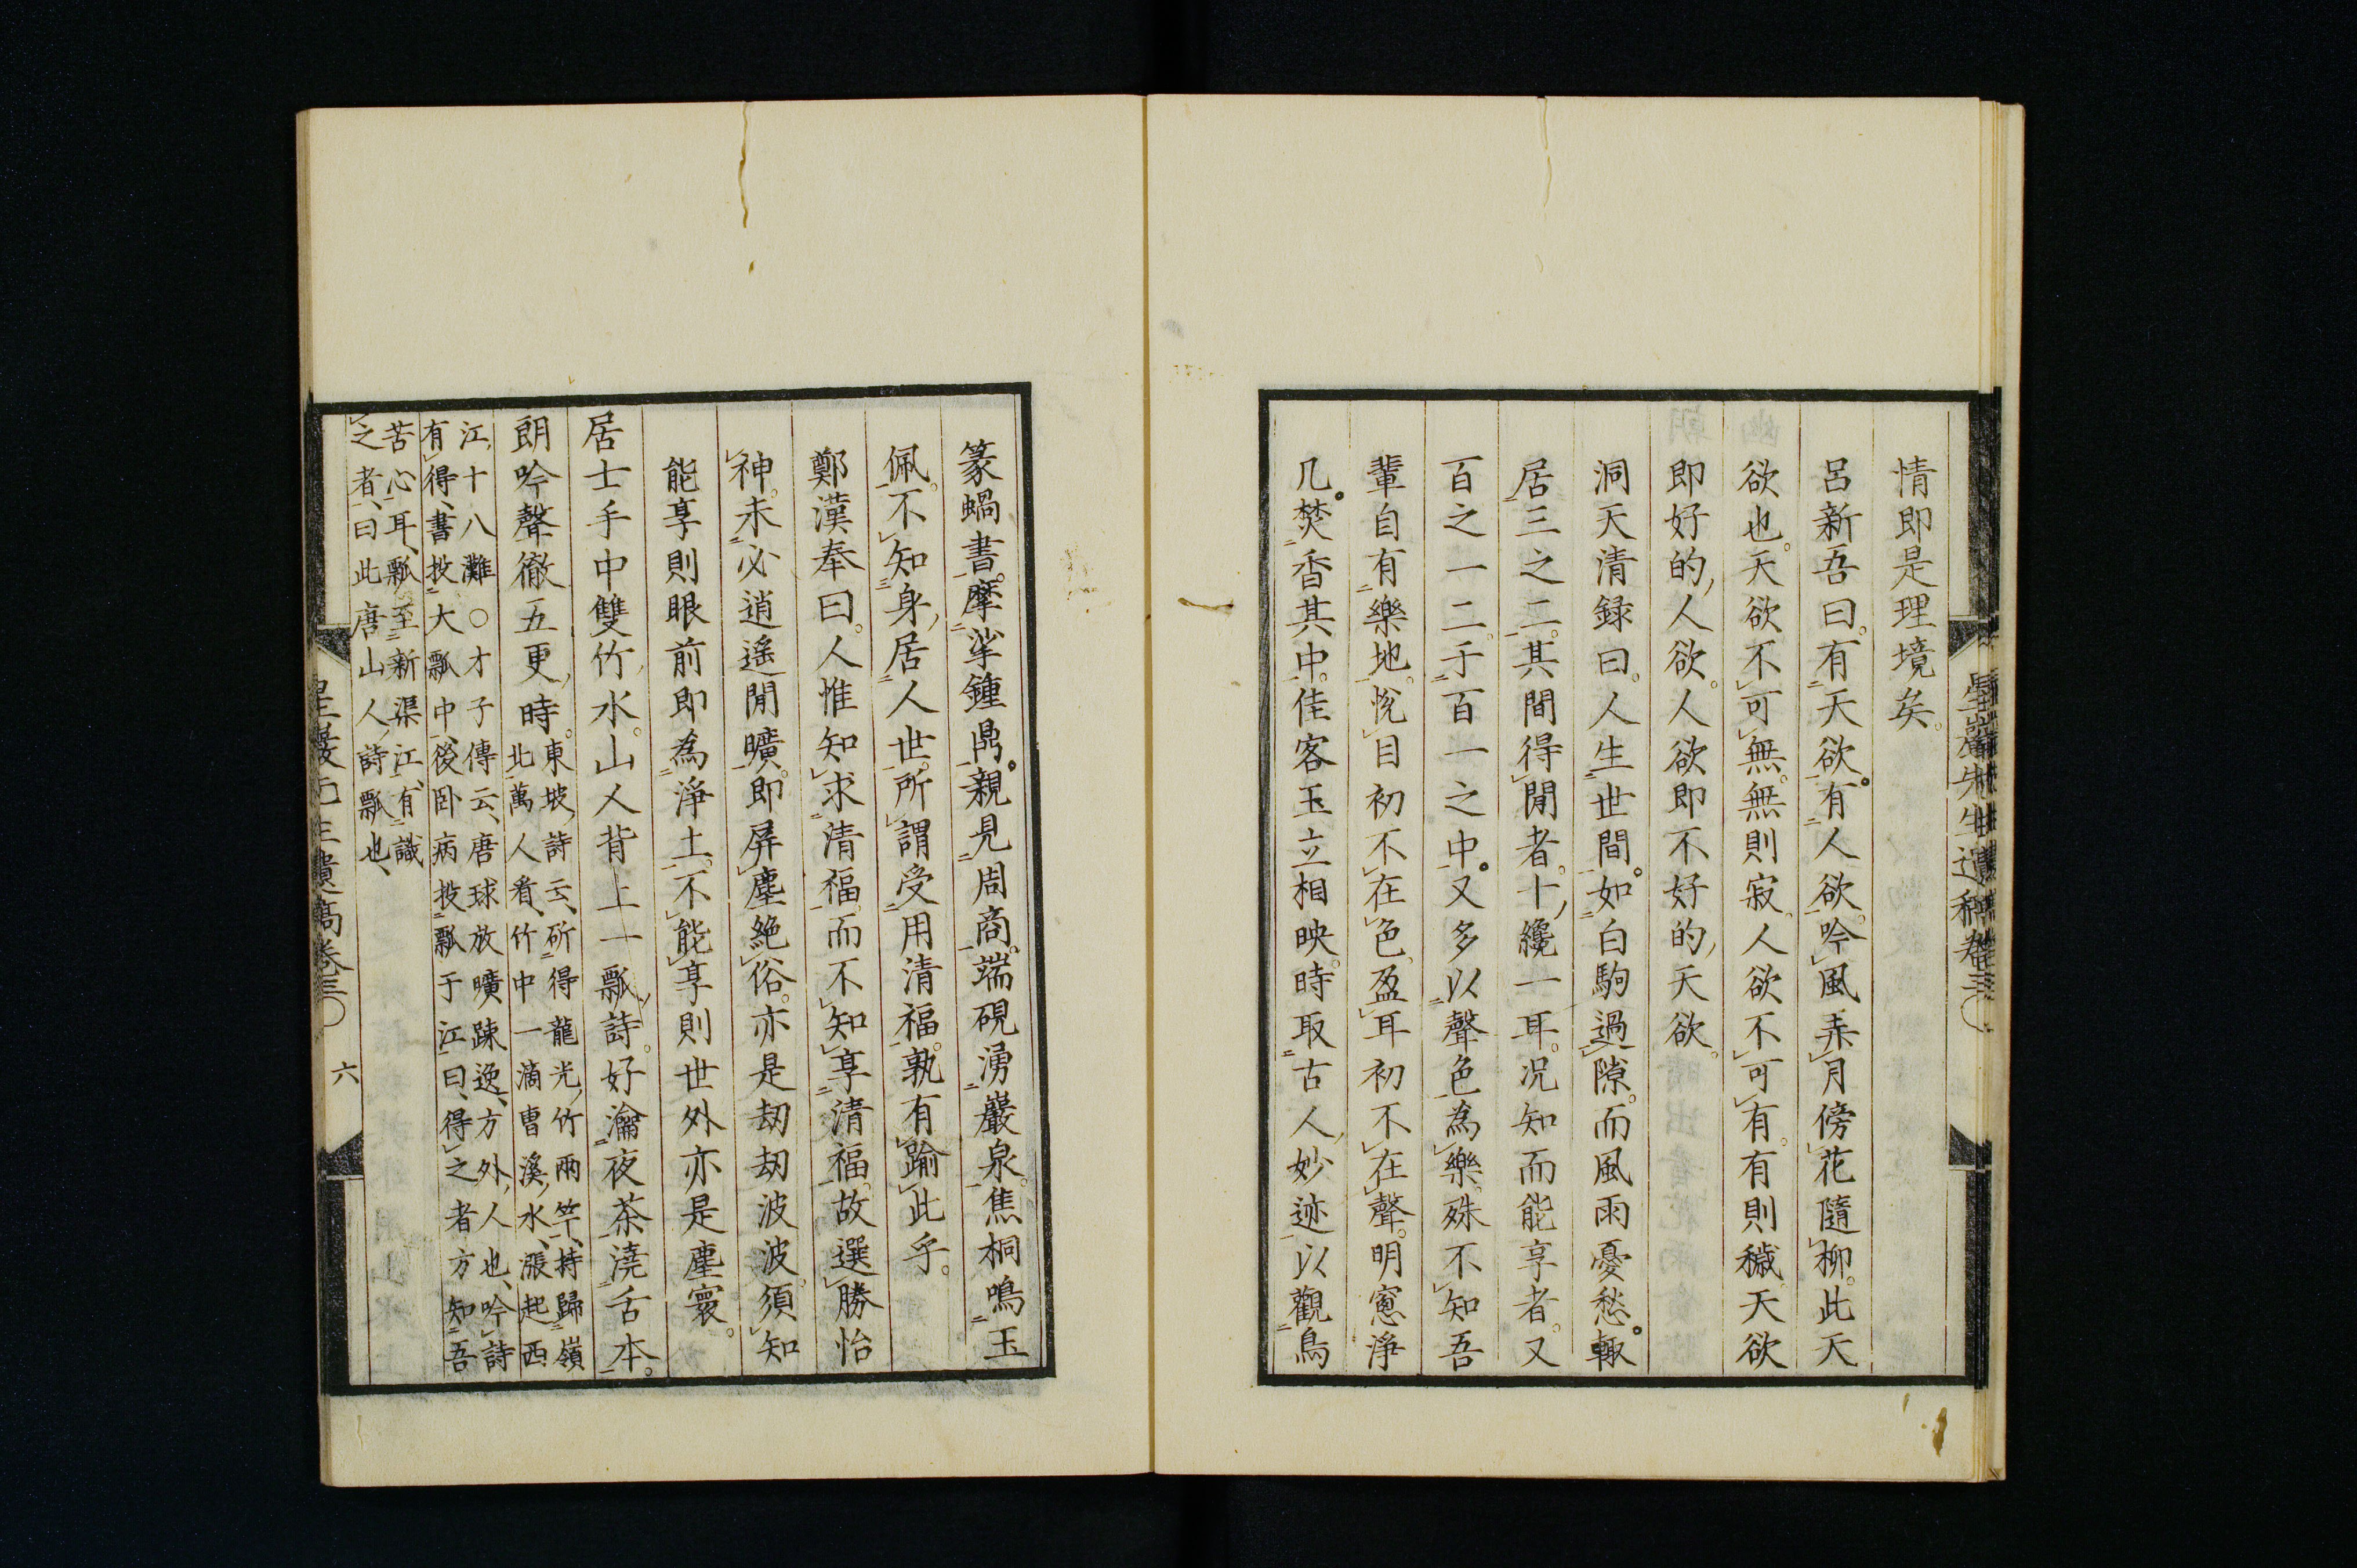 情即是理境矣。
呂新吾曰。有天欲。有人欲。吟風弄月傍花隨柳。此天
欲也。天欲不可無。無則寂。人欲不可有。有則穢。天欲
即好的人欲。人欲即不好的天欲。
洞天清録曰。人生世間。如白駒過隙。而風雨憂愁。輙
居三之二。其間得閒者。十纔一耳。况知而能享者。又
百之一二。于百一之中。又多以聲色為樂。殊不知吾
輩自有樂地。悦目初不在色。盈耳初不在聲。明窓淨
几。焚香其中。佳客玉立相映。時取古人妙迹以觀鳥
篆蝸書。摩挲鍾鼎。親見周商。端硯湧巖泉。焦桐鳴玉
佩。不知身居人世。所謂受用清福。孰有踰此乎。
鄭漢奉曰。人惟知求清福。而不知享清福。故選勝怡
神。未必逍遥閒曠。即屏塵絶俗。亦是刼刼波波。須知
能享則眼前即為淨土。不能享則世外亦是塵寰。
居士手中雙竹水。山人背上一瓢詩。好瀹夜茶澆舌本。
朗吟聲徹五更時。東坡詩云、斫得龍光竹兩竿、持歸嶺
北萬人看、竹中一滴曺溪水、漲起西
江十八灘〇才子傳云、唐球放曠踈逸、方外人也、吟詩
有得、書投大瓢中、後卧病投瓢于江曰、得之者方知吾
苦心耳、瓢至新渠江、有識
之者、曰此唐山人詩瓢也、
星巖先生遺稿卷三〇
六